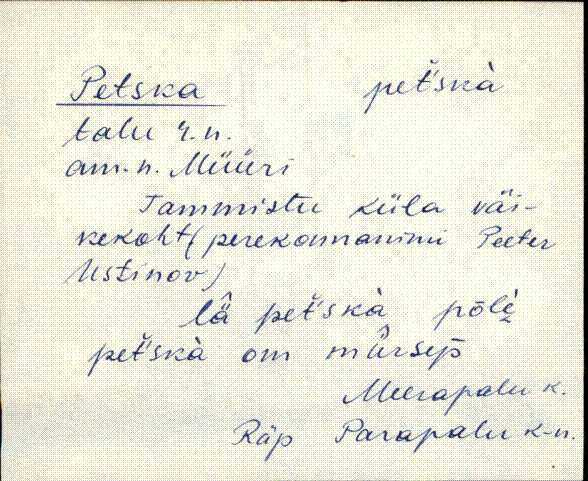 Petska pet̆'skà
talu r.n.
am.n. Müüri
Tammistu küla väi-
kekoht (perekonnanimi Peeter
Ustinov)
lä̂ pet̆'skà pōlè̬
pet̆'skà om mǖ̂rsep̄
Meerapalu k.
Räp Parapalu k-n.